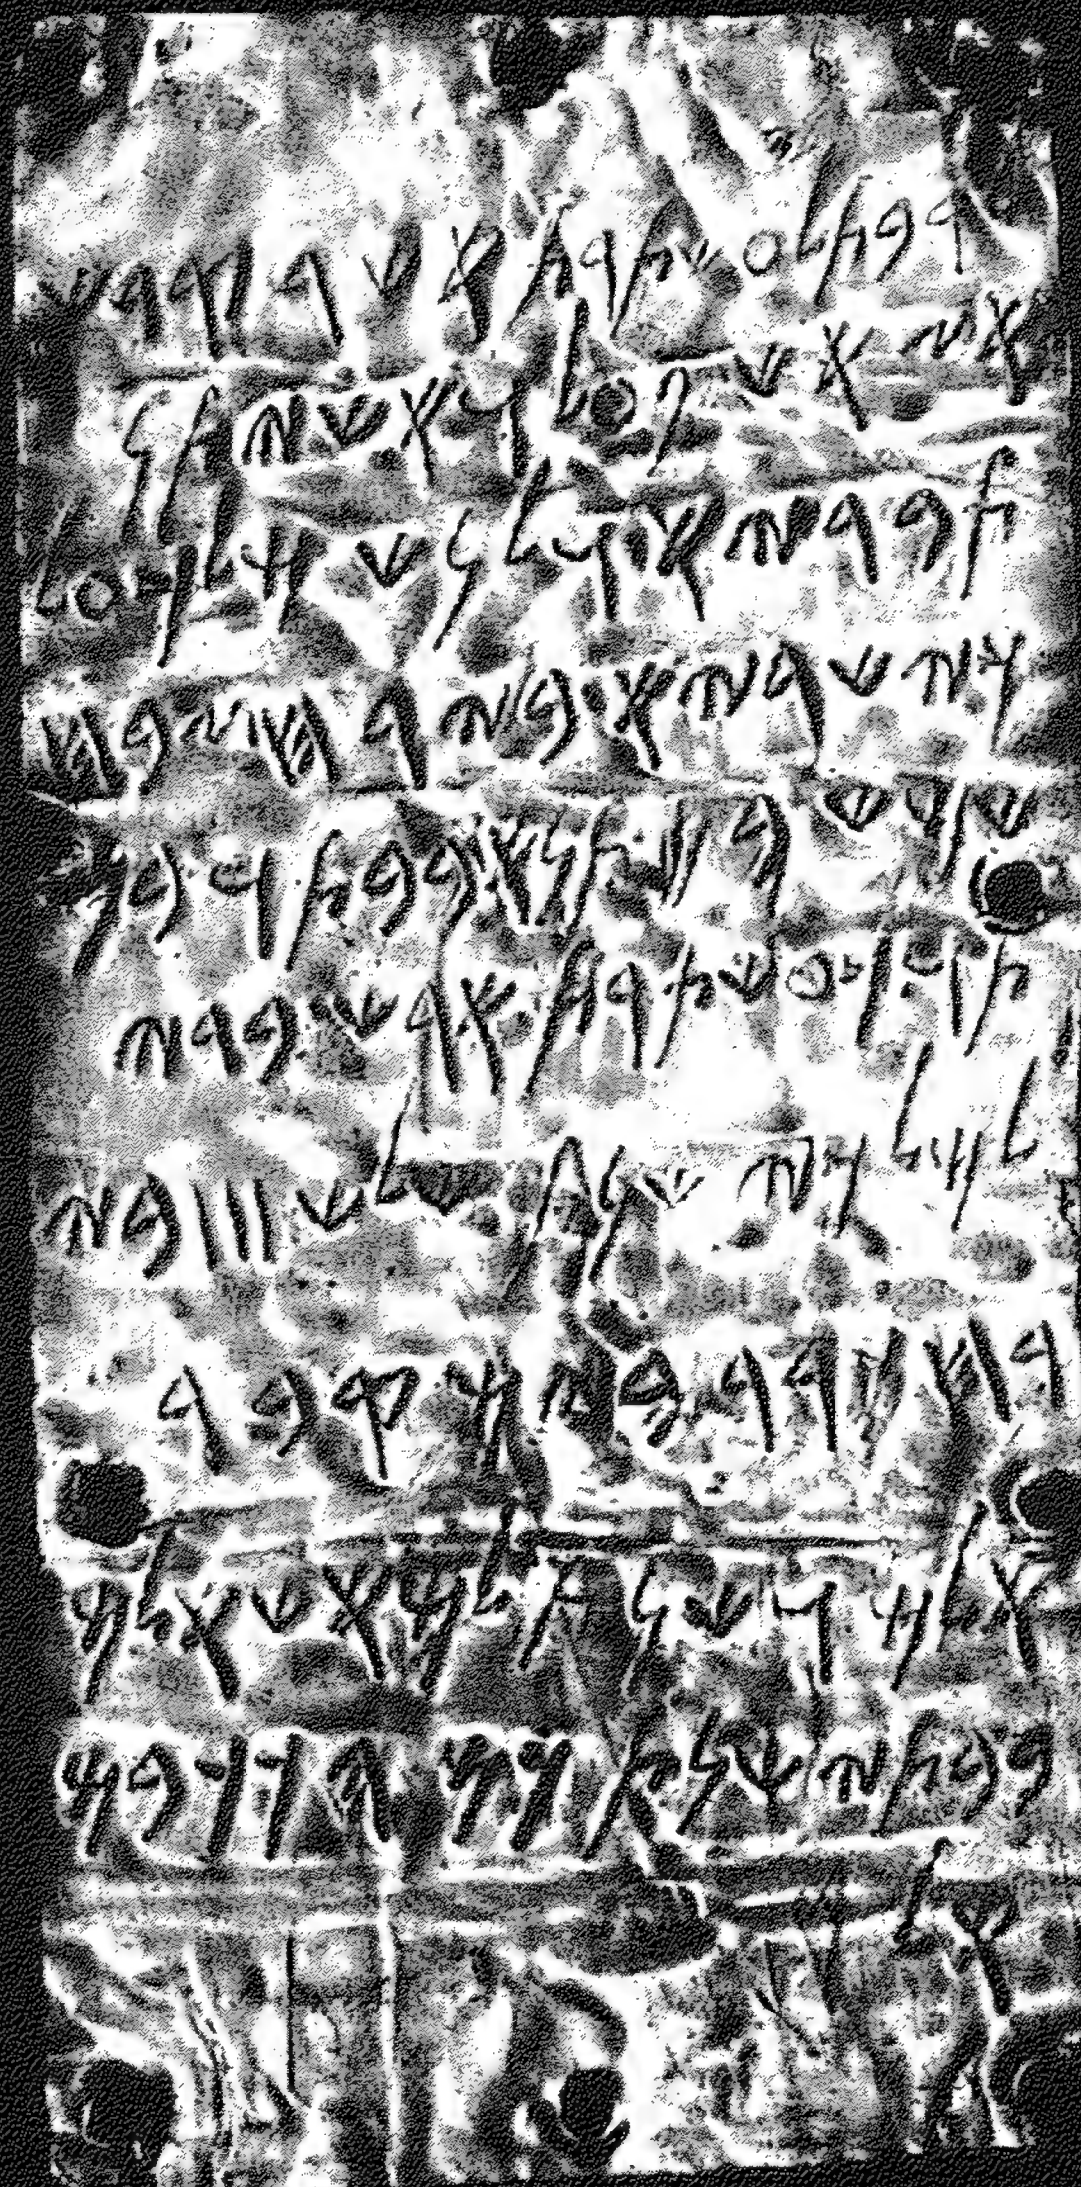 𐤋𐤓𐤁𐤕𐤋𐤏𐤔𐤕𐤓𐤕𐤀𐤔𐤓𐤒𐤃𐤔
𐤀𐤆𐤀𐤔𐤐𐤏𐤋𐤅𐤀𐤔𐤉𐤕𐤍
𐤕𐤁𐤓𐤉𐤀𐤅𐤋𐤍𐤔𐤌𐤋𐤊𐤏𐤋
𐤊𐤉𐤔𐤓𐤉𐤀𐤁𐤉𐤓𐤇𐤆𐤁𐤇
𐤔𐤌𐤔𐤁𐤌𐤕𐤍𐤀𐤁𐤁𐤕𐤅𐤁𐤌
𐤕𐤅𐤊𐤏𐤔𐤕𐤓𐤕𐤀𐤓𐤔𐤁𐤃𐤉
𐤋𐤌𐤋𐤊𐤉𐤔𐤍𐤕𐤔𐤋𐤔𐤖𐤖𐤖𐤁𐤉
𐤓𐤇𐤊𐤓𐤓𐤁𐤉𐤌𐤒𐤁𐤓
𐤀𐤋𐤌𐤅𐤔𐤍𐤕𐤋𐤌𐤀𐤔𐤀𐤋𐤌
𐤁𐤁𐤕𐤉𐤔𐤍𐤕𐤊𐤌𐤄𐤊𐤊𐤁𐤌
𐤀𐤋